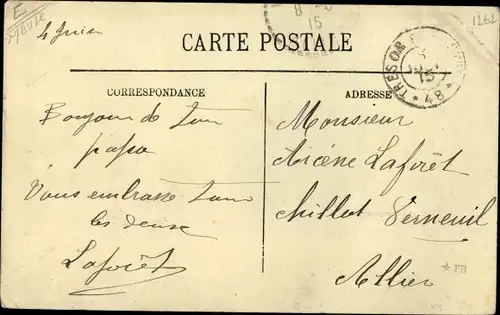 E
Meuse
4 Juin
8 - 6
15
1262
CARTE POSTALE
TRESOR E
15
* 48 *
CORRESPONDANCE
ADRESSE
Bonjour de ton
papa
Vous embrasse tous
les deux
Laforêt
Monsieur
Arcène Laforêt
Verneuil
Allier
☆ FB